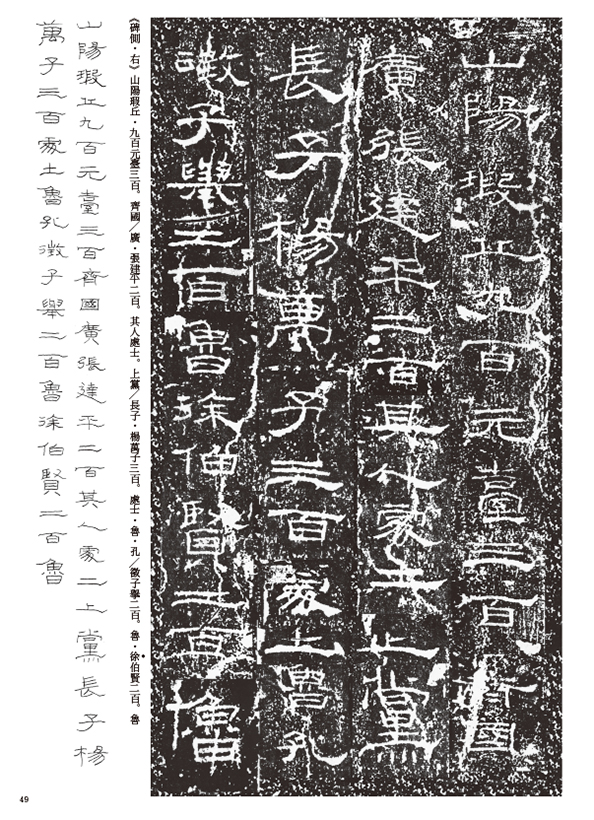 山陽瑕丘九百元臺三百齊國
廣張建平二百其人處士上黨
長子楊萬子三百處士魯孔
徵子舉二百魯徐伯賢二百魯
《碑側・右》山陽瑕丘・九百元臺三百。齊國／廣・張建平二百，其人處士。上黨／長子・楊萬子三百。處士・魯・孔／徵子擧二百。魯・徐伯賢二百。魯
山陽瑕丘九百元臺三百齊國廣張達平二百其人處二上黨長子楊
萬子三百處土魯孔徵子舉二百魯徐伯賢二百魯
49